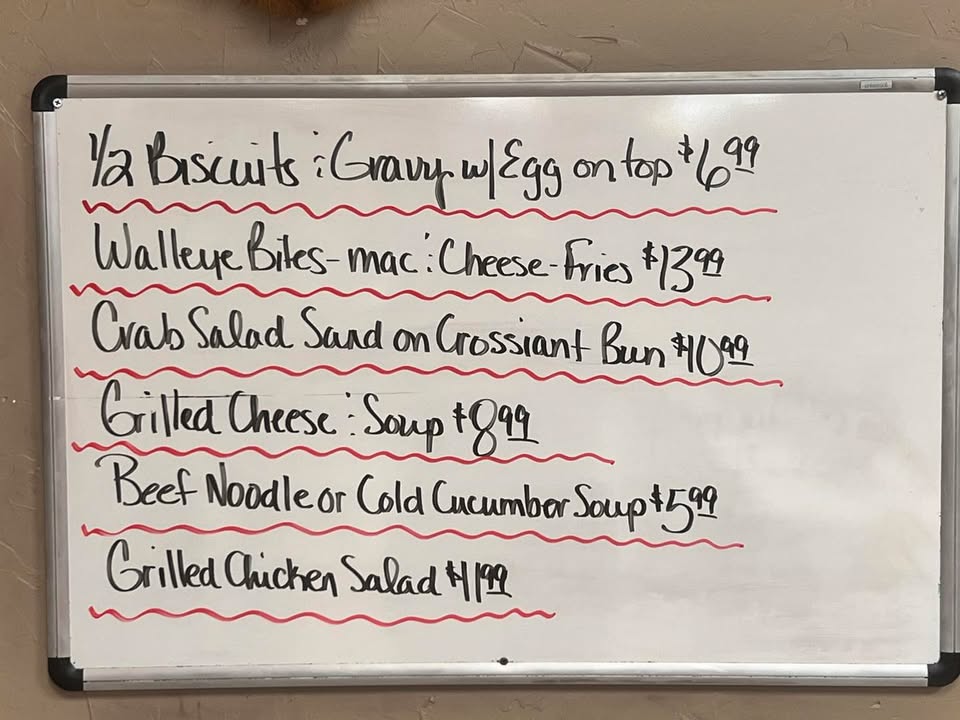 1/2 Biscuits : Gravy w/ Egg on top $6.99
Walleye Bites - mac : Cheese - Fries $13.99
Crab Salad Sand on Crossiant Bun $10.99
Grilled Cheese : Soup $8.99
Beef Noodle or Cold Cucumber Soup $5.99
Grilled Chicken Salad $11.99